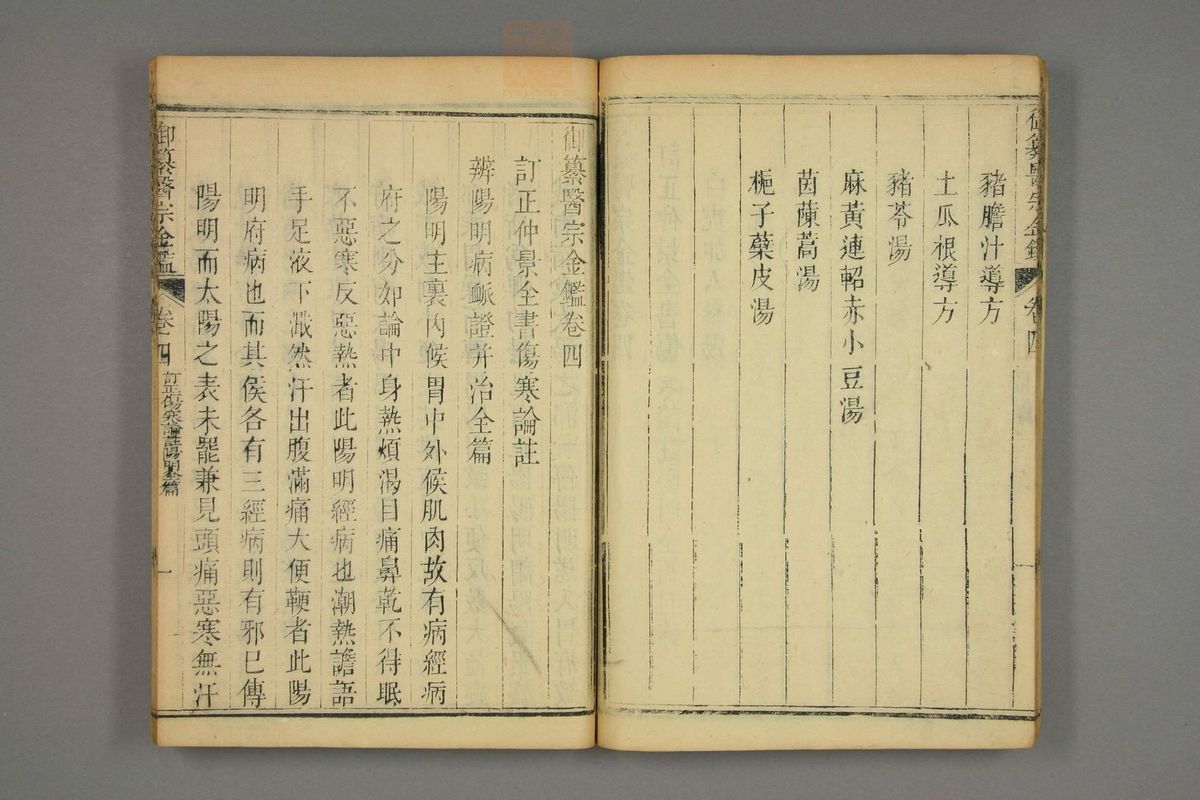 御纂醫宗金鑑 卷四
豬膽汁導方
土瓜根導方
豬苓湯
麻黃連軺赤小豆湯
茵蔯蒿湯
梔子蘗皮湯
御纂醫宗金鑑卷四
訂正仲景全書傷寒論註
辨陽明病脈證并治全篇
陽明主裏內候胃中外候肌肉故有病經病
府之分如論中身熱煩渴目痛鼻乾不得眠
不惡寒反惡熱者此陽明經病也潮熱譫語
手足腋下濈然汗出腹滿痛大便鞕者此陽
明府病也而其候各有三經病則有邪已傳
陽明而太陽之表未罷兼見頭痛惡寒無汗
御纂醫宗金鑑 卷四 訂正傷寒論註陽明全篇 一